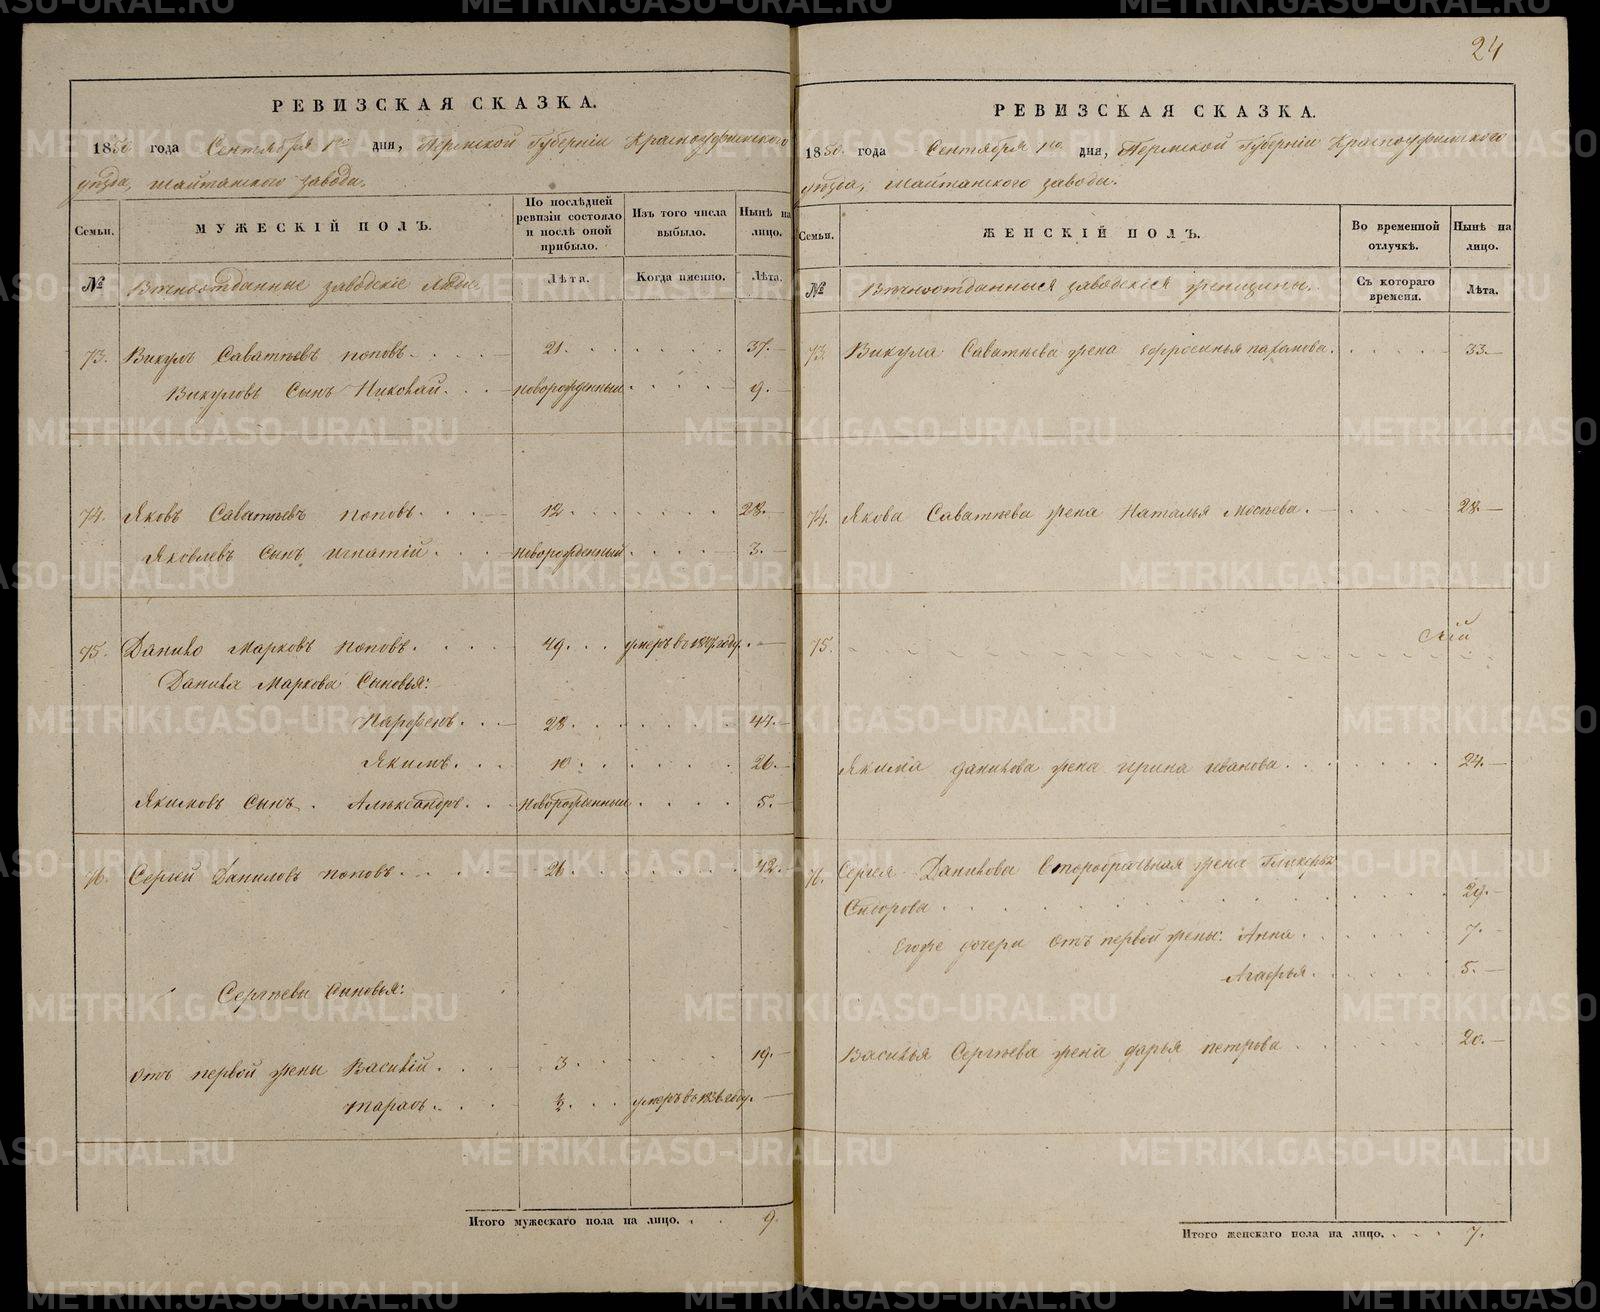 РЕВИЗСКАЯ СКАЗКА.
1850 года Сентября 1го дня, Пермской Губерніи Красноуфимскаго
уѣзда, Шайтанского завода.
Семьи.
МУЖЕСКІЙ ПОЛЪ.
По послѣдней
ревизіи состояло
и послѣ оной
прибыло.
Изъ того числа
выбыло.
Нынѣ на
лицо.
№
Вѣчноотданные заводскіе люди
Лѣта.
Когда именно.
Лѣта.
73. Викулъ Саватѣевъ Поповъ. 21. 37.
Викуловъ Сынъ Николай. новорожденный 9.
74. Яковъ Саватѣевъ Поповъ. 12. 28.
Яковлевъ Сынъ Игнатій. новорожденный 3.
75. Данило Марковъ Поповъ. 49. умеръ въ году.
Данила Маркова Сыновья:
Парфенъ. 28. 44.
Якимъ. 10. 26.
Якимовъ Сынъ. Александръ. новорожденный 5.
76. Сергей Даниловъ Поповъ. 26. 42.
Сергѣевы Сыновья:
Отъ первой жены Василій. 3. 19.
Тарасъ. умеръ въ 1836 году.
Итого мужескаго пола на лицо. 9.
24
РЕВИЗСКАЯ СКАЗКА.
1850 года Сентября 1го дня, Пермской Губерніи Красноуфимскаго
уѣзда, Шайтанского завода.
Семьи.
ЖЕНСКІЙ ПОЛЪ.
Во временной
отлучкѣ.
Нынѣ на
лицо.
№
Вѣчноотданныя заводскія женщины.
Съ котораго
времени.
Лѣта.
73. Викула Саватѣева жена Ефросинья 33.
74. Якова Саватѣева жена Наталья Мосѣева. 28.
75.
Якима Данилова жена Ирина Иванова. 24.
76. Сергея Данилова второбрачная жена
Сидорова 29.
Егоже дочери отъ первой жены: Анна. 7.
Агафья. 5.
Василья Сергѣева жена Дарья Петрова 20.
Итого женскаго пола на лицо. 7.
METRIKI.GASO-URAL.RU